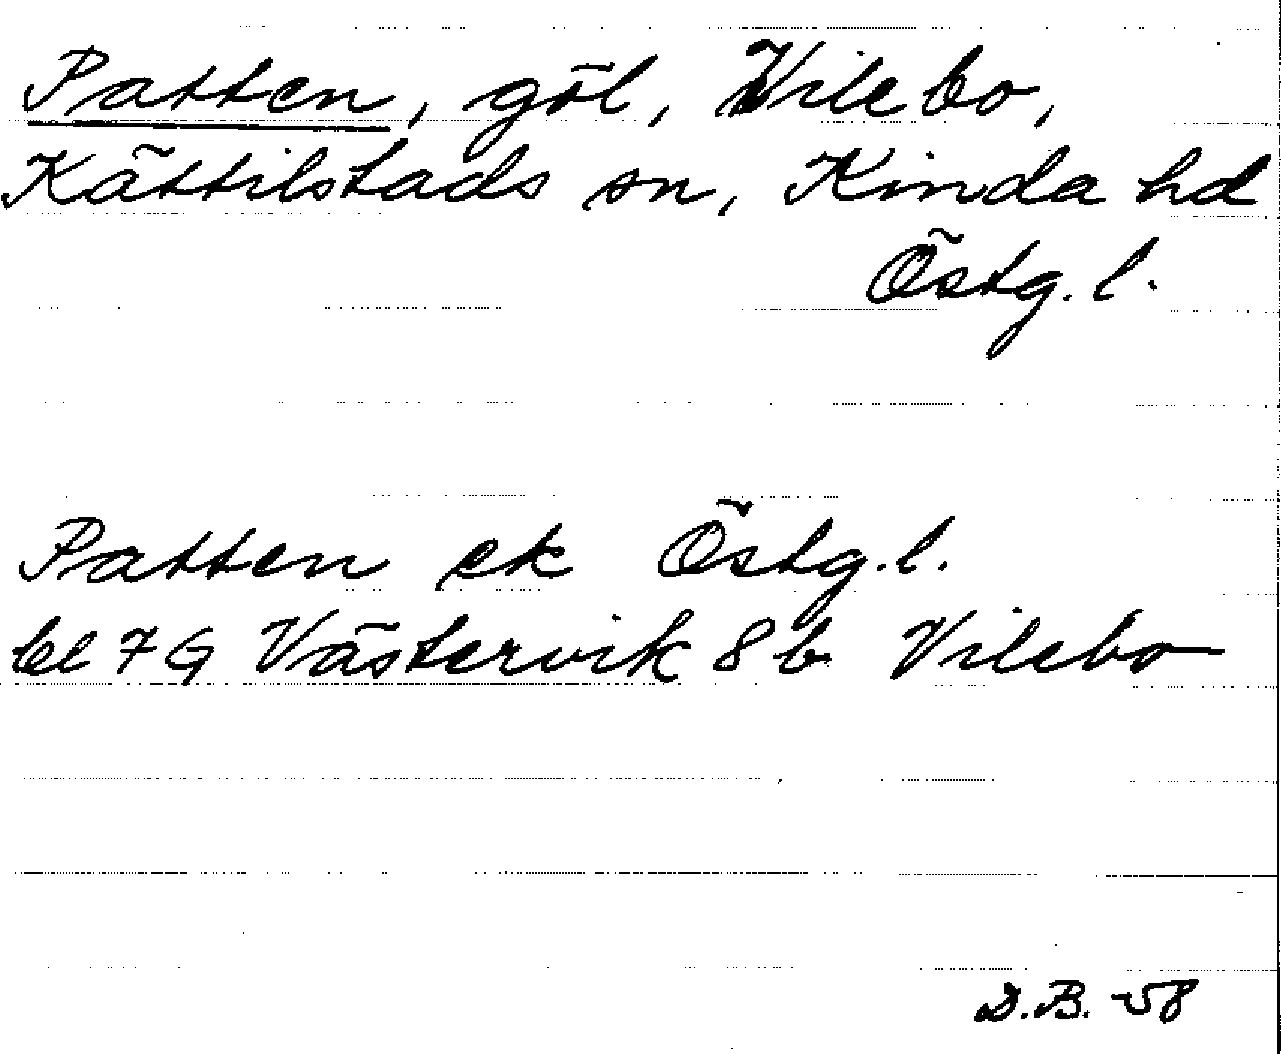 Patten, göl, Vilebo,
Kättilstads sn, Kinda hd
Östg. l.
Patten ek Östg. l.
bl 7G Västervik 8b Vilebo
D.B. -58